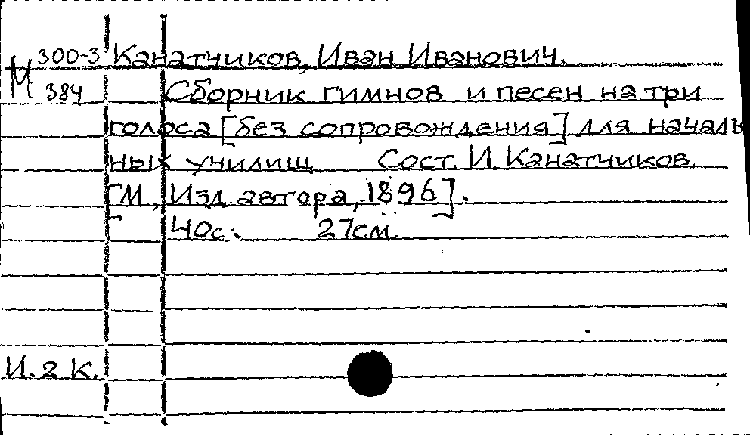 М 300-3 Канатчиков, Иван Иванович.
384 Сборник гимнов и песен на три
голоса [без сопровождения] для началь
ных училищ Сост. И. Канатчиков.
[М., Изд. автора, 1896].
40с. 27см.
И. 2 К.